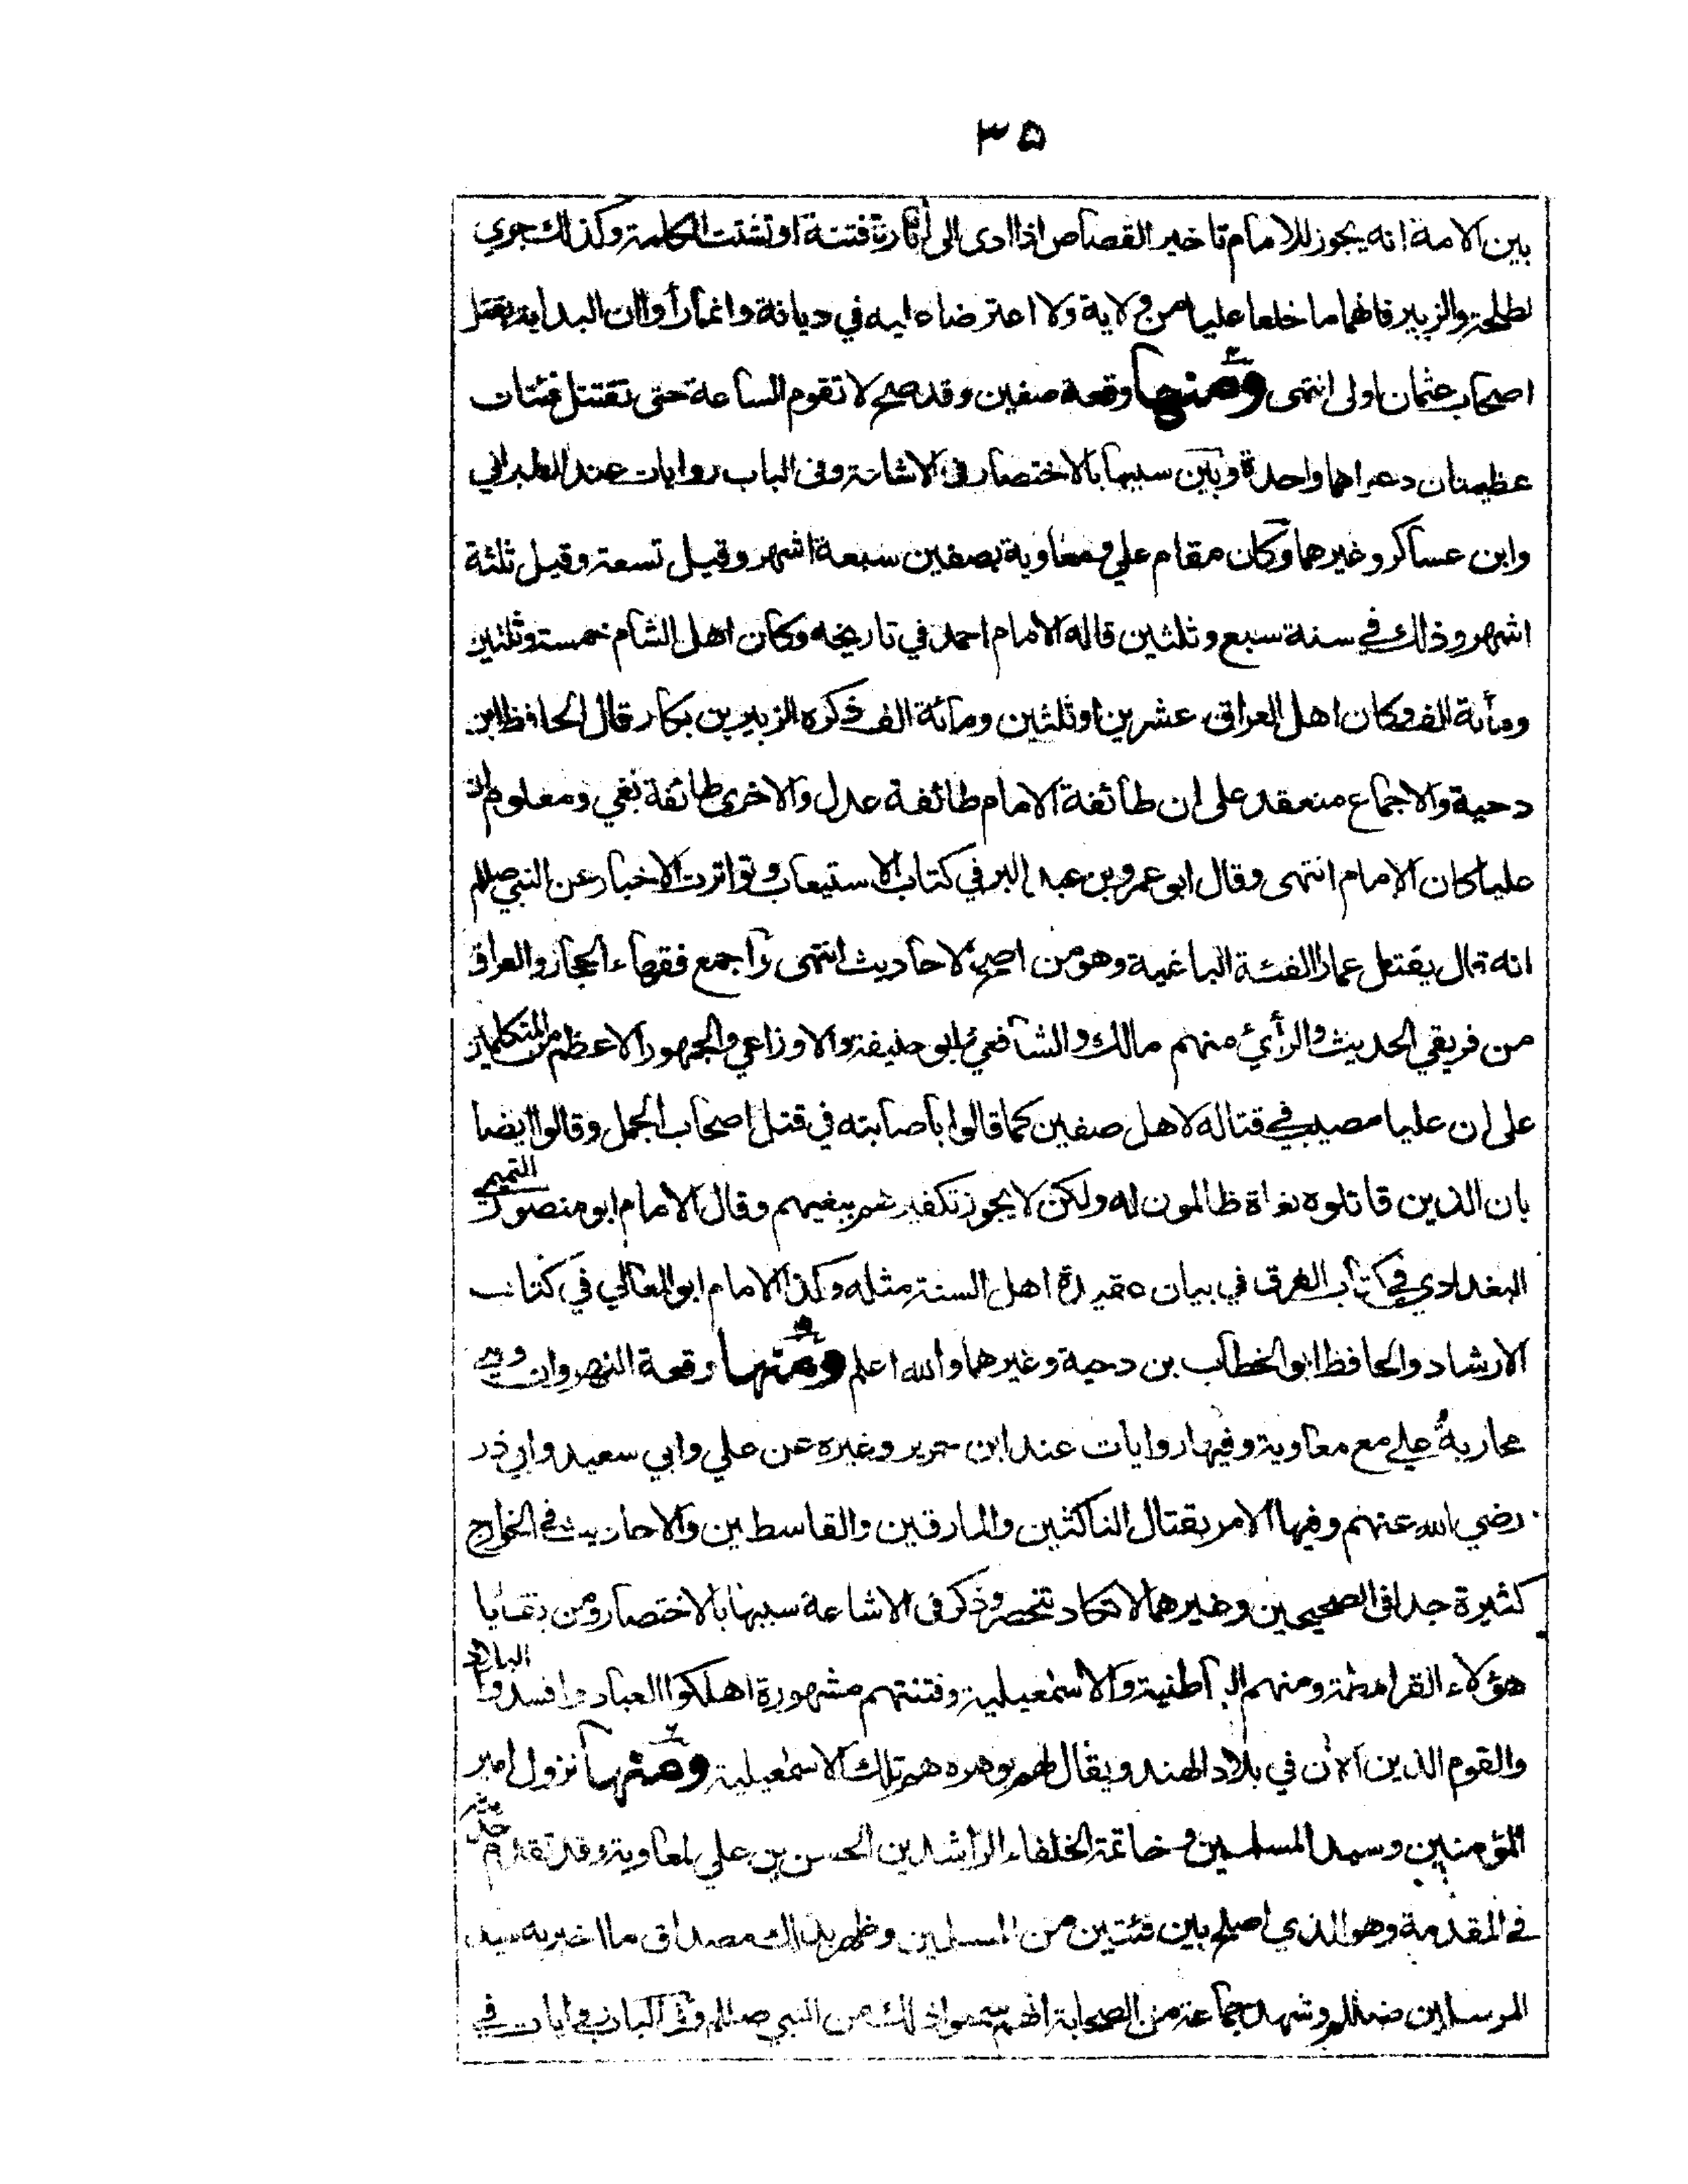 ٣٥
بين الامة انه يجوز للامام تاخير القصاص اذا ادى الى اثارة فتنة او تشتت الكلمة وكذلك جرى
لطلحة والزبير فانهما ما خلعا عليا من ولاية ولا اعترضا عليه في ديانة وانما رأوا ان البداية بقتل
اصحاب عثمان اولى انتهى ومنها وقعة صفين وقد صح لا تقوم الساعة حتى تقتتل فئتان
عظيمتان دعواهما واحدة وبين سببها بالاختصار في الاشاعة وفى الباب روايات عند الطبراني
وابن عساكر وغيرهما وكان مقام علي ومعاوية بصفين سبعة اشهر وقيل تسعة وقيل ثلثة
اشهر وذلك في سنة سبع وثلثين قاله الامام احمد في تاريخه وكان اهل الشام خمسة وثلثين
ومأئة الف وكان اهل العراق عشرين او ثلثين ومائة الف ذكره الزبير بن بكار قال الحافظ ابن
دحية والاجماع منعقد على ان طائفة الامام طائفة عدل والاخرى طائفة بغي ومعلوم ان
عليا كان الامام انتهى وقال ابو عمرو بن عبد البر في كتاب الاستيعاب وتواترت الاخبار عن النبي صللم
انه قال يقتل عمار الفئة الباغية وهو من اصح الاحاديث انتهى واجمع فقهاء الحجاز والعراق
من فريقي الحديث والرأي منهم مالك والشافعي وابو حنيفة والاوزاعي والجمهور الاعظم من المتكلمين
على ان عليا مصيب في قتاله لاهل صفين كما قالوا باصابته في قتل اصحاب الجمل وقالوا ايضا
بان الذين قاتلوه بغاة ظالمون له ولكن لا يجوز تكفيرهم ببغيهم وقال الامام ابو منصور التميمي
البغدادي في كتاب الفرق في بيان عقيدة اهل السنة مثله وكذا الامام ابو المعالي في كتاب
الارشاد والحافظ ابو الخطاب بن دحية وغيرهما والله اعلم ومنها وقعة النهروان وهي
محاربة علي مع معاوية وفيها روايات عند ابن جرير وغيره عن علي وابي سعيد وابي ذر
رضي الله عنهم وفيها الامر بقتال الناكثين والمارقين والقاسطين والاحاديث في الخوارج
كثيرة جدا فى الصحيحين وغيرهما لا تكاد تنحصر وذكر فى الاشاعة سببها بالاختصار ومن بقايا
هؤلاء القرامطة ومنهم الباطنية والاسمعيلية وفتنتهم مشهورة اهلكوا العباد وافسدوا البلاد
والقوم الذين الآن في بلاد الهند ويقال لهم بوهره هم تلك الاسمعيلية ومنها نزول امير
المؤمنين وسيد المسلمين وخاتمة الخلفاء الراشدين الحسن بن علي لمعاوية وقد تقدم
في المقدمة وهو الذي اصلح بين فئتين من المسلمين وظهر بذلك مصداق ما اخبر به سيد
المرسلين صللم وشهد جماعة من الصحابة انهم سمعوا ذلك من النبي صللم وفى الباب روايات في